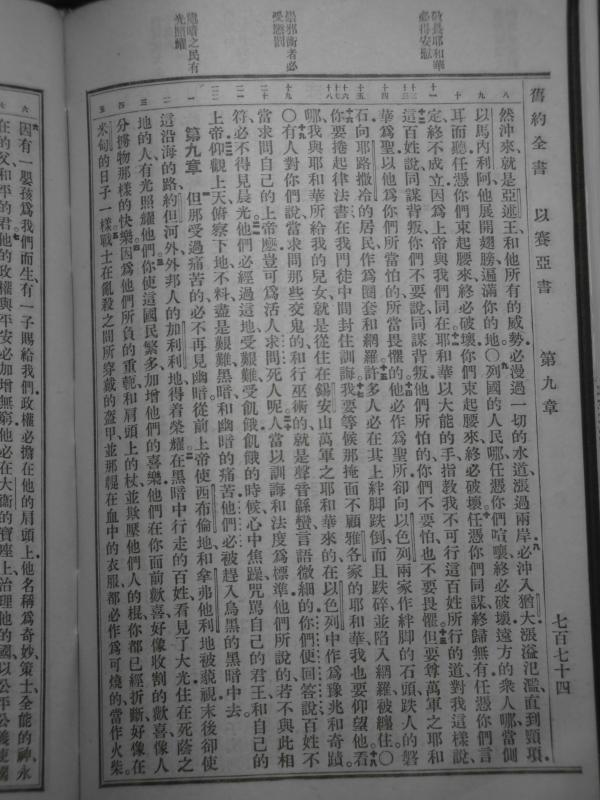 舊約全書　以賽亞書　第九章　七百七十四
敬畏耶和華
必得安慰
崇邪術者必
受懲罰
幽暗之民有
光照耀
然沖來就是亞述王和他所有的威勢必漫過一切的水道漲過兩岸必沖入猶大漲溢氾濫直到頸項
以馬內利阿他展開翅膀遍滿你的地○列國的人民哪任憑你們喧嚷終必破壞遠方的衆人哪當側
耳而聽任憑你們束起腰來終必破壞你們束起腰來終必破壞任憑你們同謀終歸無有任憑你們言
定終不成立因爲上帝與我們同在耶和華以大能的手指教我不可行這百姓所行的道對我這樣說
這百姓說同謀背叛你們不要說同謀背叛他們所怕的你們不要怕也不要畏懼但要尊萬軍之耶和
華爲聖以他爲你們所當怕的所當畏懼的他必作爲聖所卻向以色列兩家作絆脚的石頭跌人的磐
石向耶路撒冷的居民作爲圈套和網羅許多人必在其上絆脚跌倒而且跌碎並陷入網羅被纏住○
你要捲起律法書在我門徒中間封住訓誨我要等候那掩面不顧雅各家的耶和華我也要仰望他看
哪我與耶和華所給我的兒女就是從住在錫安山萬軍之耶和華來的在以色列中作爲豫兆和奇蹟
○有人對你們說當求問那些交鬼的和行巫術的就是聲音綿蠻言語微細的你們便回答說百姓不
當求問自己的上帝麽豈可爲活人求問死人呢人當以訓誨和法度爲標準他們所說的若不與此相
符必不得見晨光他們必經過這地受艱難受飢餓飢餓的時候心中焦躁咒罵自己的君王和自己的
上帝仰觀上天俯察下地不料盡是艱難黑暗和幽暗的痛苦他們必被趕入烏黑的黑暗中去
第九章　但那受過痛苦的必不再見幽暗從前上帝使西布倫地和拿弗他利地被藐視末後卻使
這沿海的路約但河外外邦人的加利利地得着榮耀在黑暗中行走的百姓看見了大光住在死蔭之
地的人有光照耀他們你使這國民繁多加增他們的喜樂他們在你面前歡喜好像收割的歡喜像人
分擄物那樣的快樂因爲他們所負的重軛和肩頭上的杖並欺壓他們人的棍你都已經折斷好像在
米甸的日子一樣戰士在亂殺之間所穿戴的盔甲並那輥在血中的衣服都必作爲可燒的當作火柴
因有一嬰孩爲我們而生有一子賜給我們政權必擔在他的肩頭上他名稱爲奇妙策士全能的神永
在的父和平的君他的政權與平安必加增無窮他必在大衛的寶座上治理他的國以公平公義使國